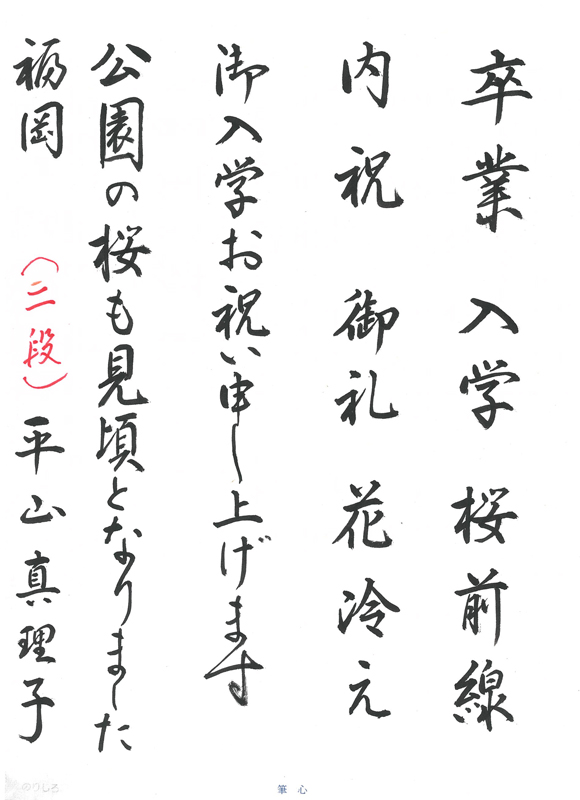 卒業 入学 桜前線
内祝 御礼 花冷え
御入学お祝い申し上げます
公園の桜も見頃となりました
福岡 (三段) 平山真理子
のりしろ
筆心